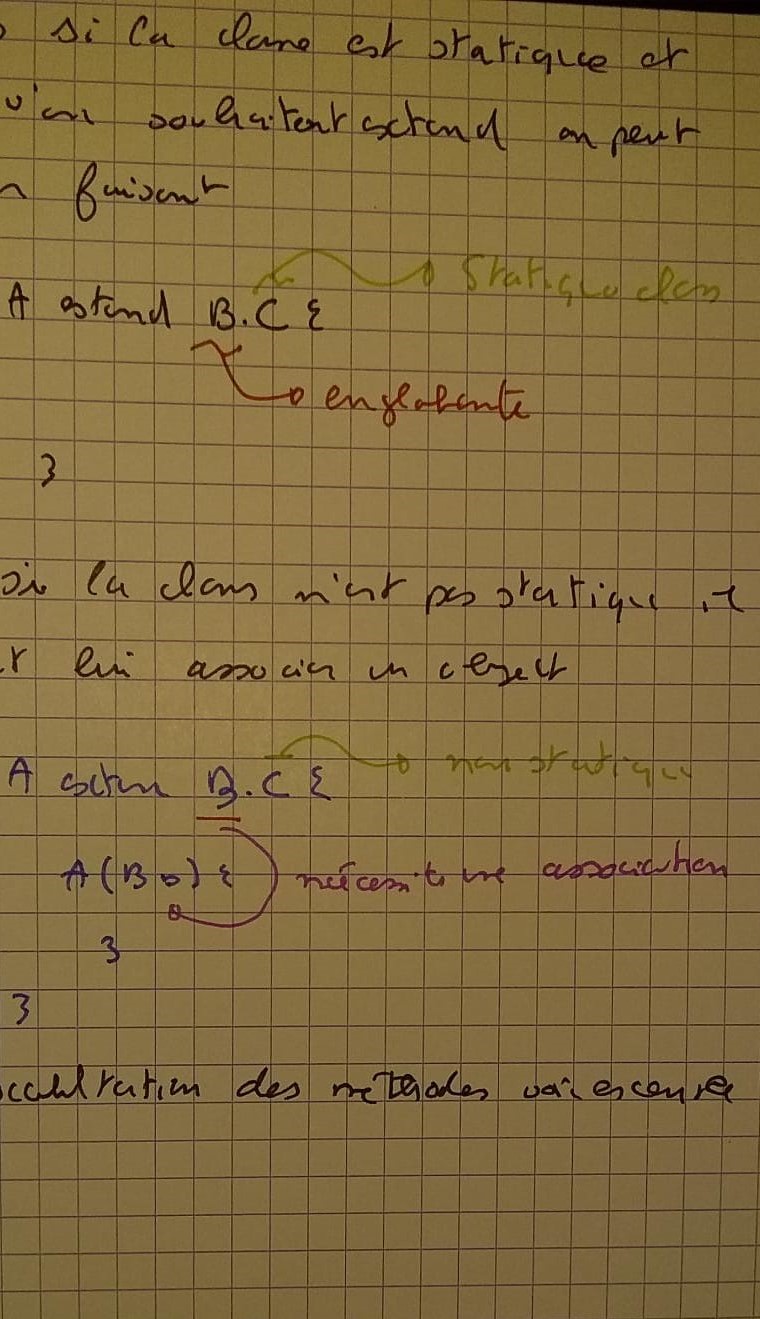 si la classe est statique et
souhaitent extend on peut
faisant
A extend B.C {
Statique class
englobante
}
si la class n'est pas statique
lui associer un object
A B.C {
non statique
A(B b) {
nécessite une association
}
}
des méthodes